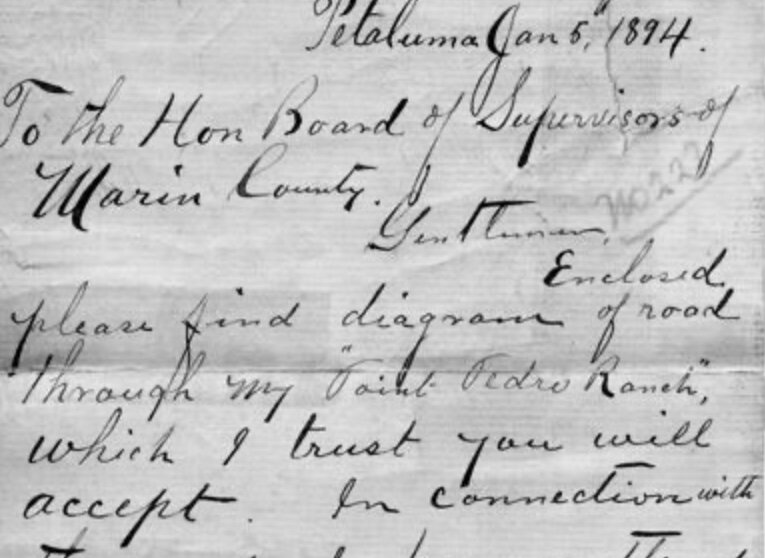 Petaluma Jan 5, 1894.
To the Hon Board of Supervisors of
Marin County.
Gentlemen,
No 222
Enclosed
please find diagram of road
through my "Point Pedro Ranch",
which I trust you will
accept. In connection with